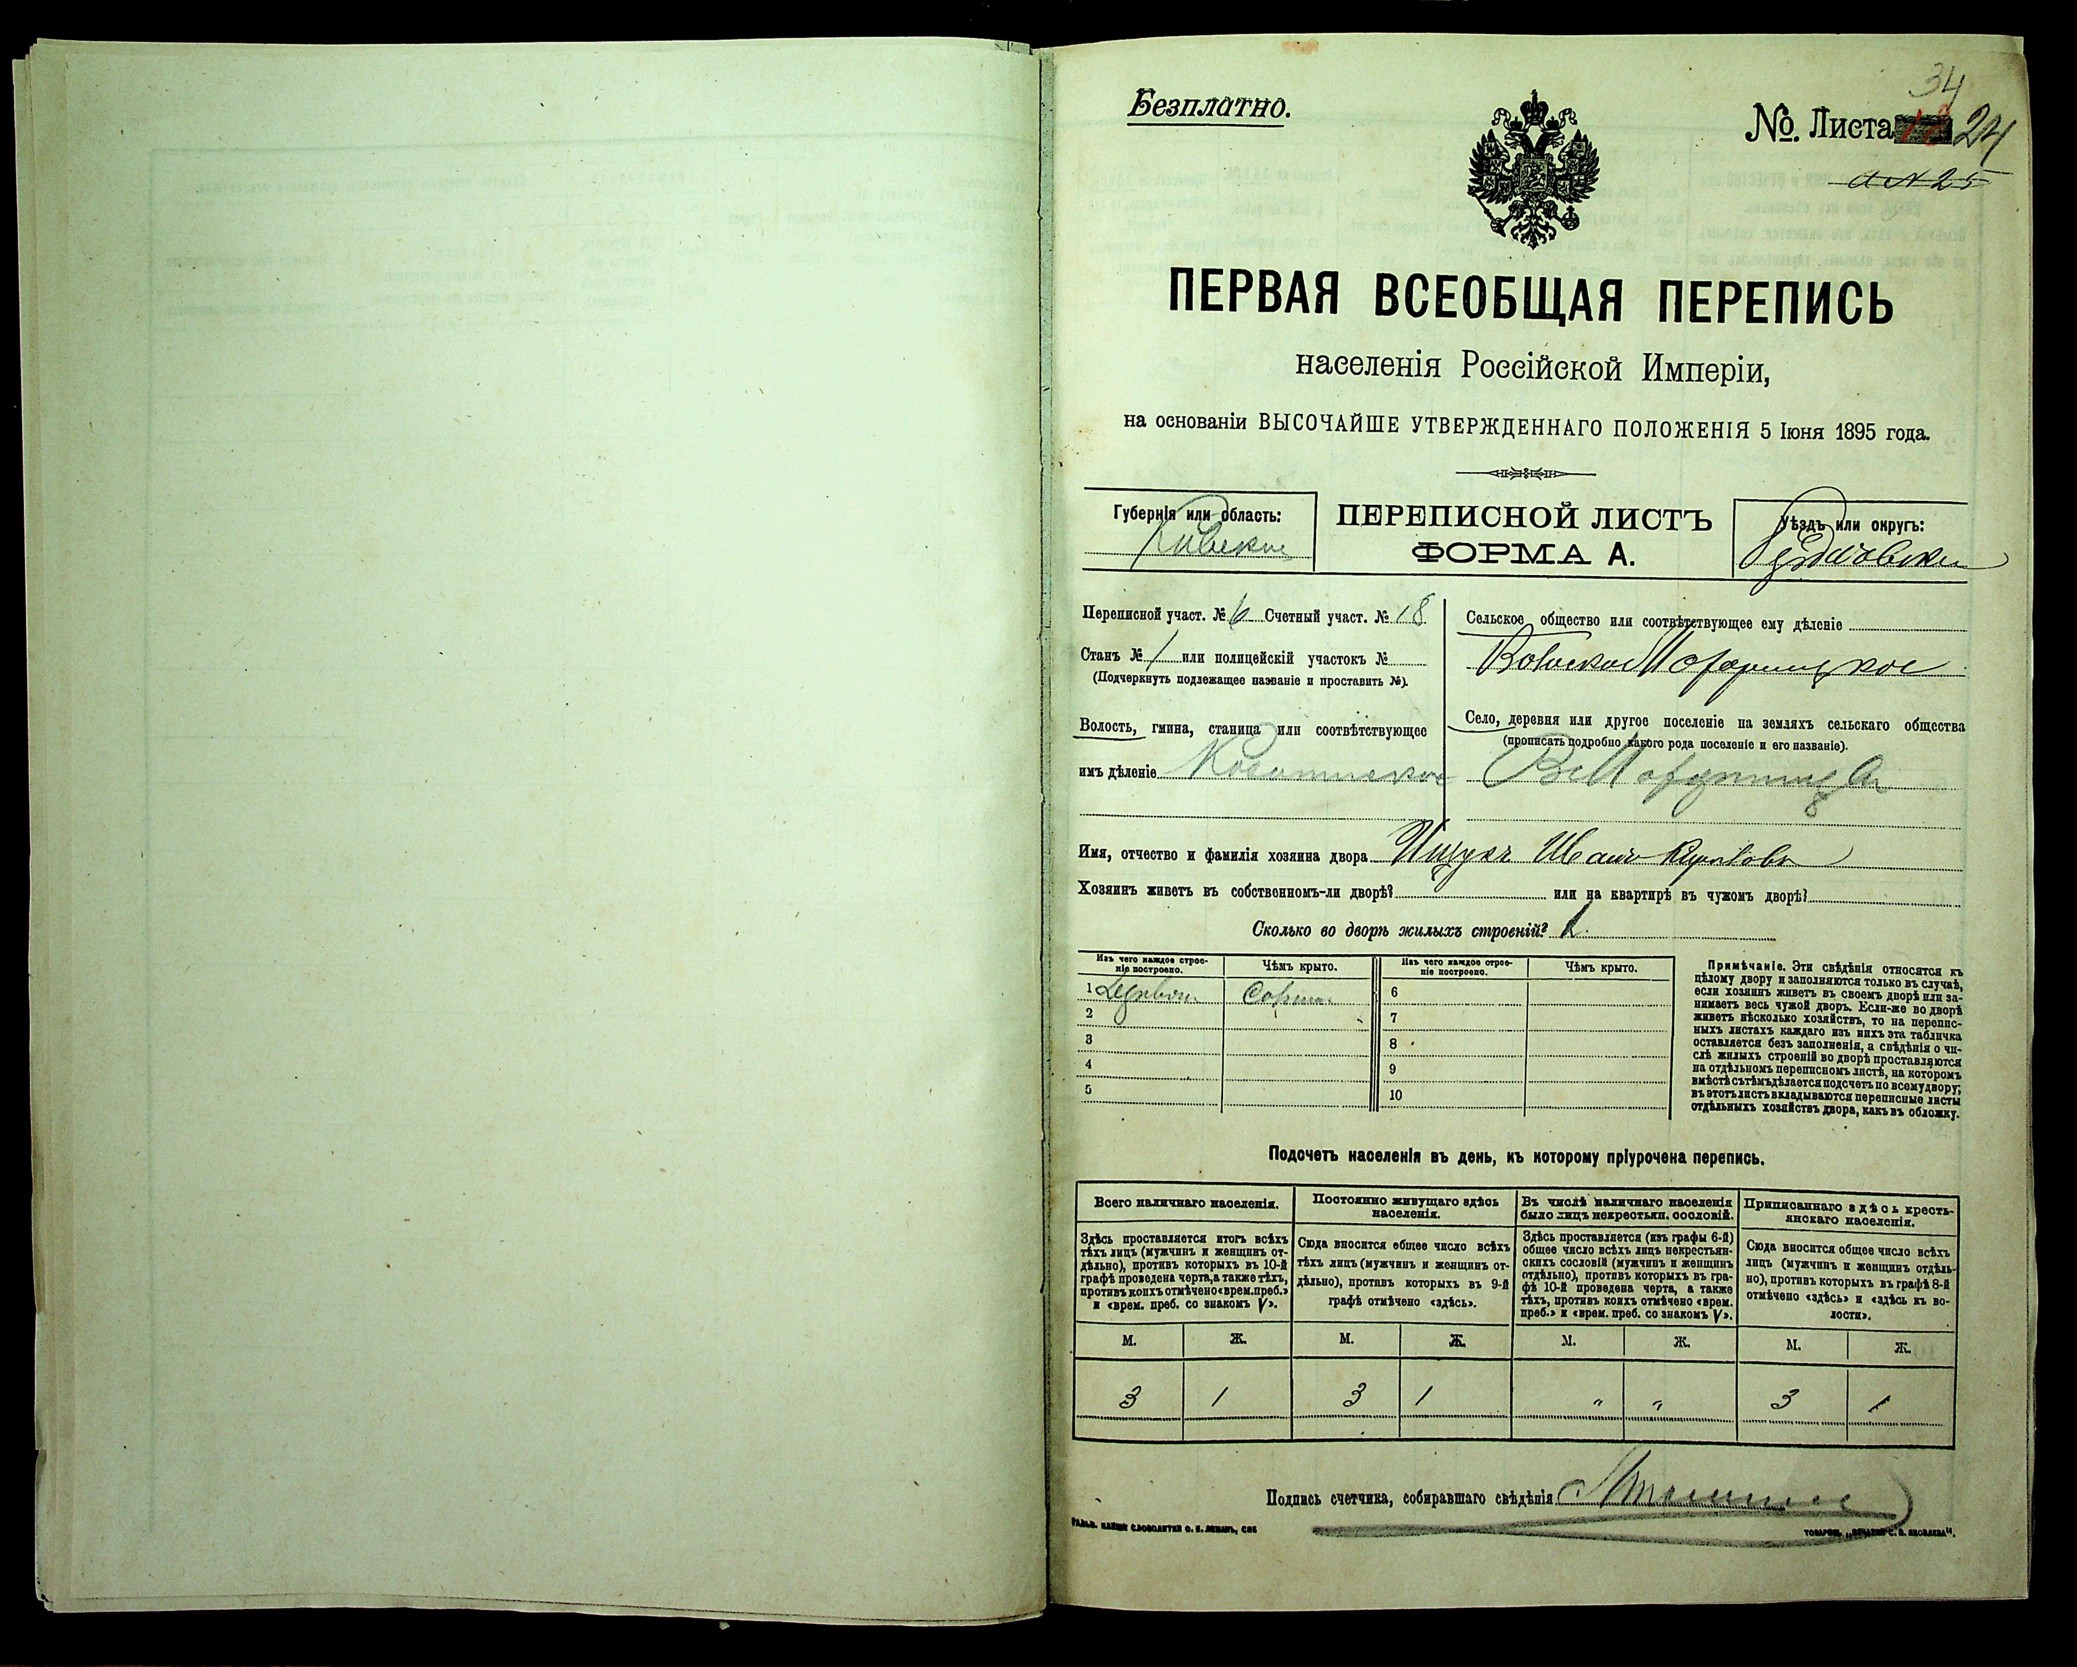 34
Безплатно.
№. Листа 24
ПЕРВАЯ ВСЕОБЩАЯ ПЕРЕПИСЬ
населенія Россійской Имперіи,
на основаніи ВЫСОЧАЙШЕ УТВЕРЖДЕННАГО ПОЛОЖЕНІЯ 5 Іюня 1895 года.
Губернія или область:
ПЕРЕПИСНОЙ ЛИСТЪ
ФОРМА А.
Уѣздъ или округъ:
Переписной участ. № 6 Счетный участ. № 18
Станъ № 1 или полицейскій участокъ №
(Подчеркнуть подлежащее названіе и проставить №).
Волость, гмина, станица или соотвѣтствующее
имъ дѣленіе
Сельское общество или соотвѣтствующее ему дѣленіе
Село, деревня или другое поселеніе на земляхъ сельскаго общества
(прописать подробно какого рода поселеніе и его названіе).
Имя, отчество и фамилія хозяина двора Ищукъ Иванъ
Хозяинъ живетъ въ собственномъ-ли дворѣ? или на квартирѣ въ чужомъ дворѣ?
Сколько во дворѣ жилыхъ строеній? 1
Изъ чего каждое строе-
ніе построено.
Чѣмъ крыто.
Изъ чего каждое строе-
ніе построено.
Чѣмъ крыто.
1
2
3
4
5
6
7
8
9
10
Примѣчаніе. Эти свѣдѣнія относятся къ
цѣлому двору и заполняются только въ случаѣ,
если хозяинъ живетъ въ своемъ дворѣ или за-
нимаетъ весь чужой дворъ. Если-же во дворѣ
живетъ нѣсколько хозяйствъ, то на перепис-
ныхъ листахъ каждаго изъ нихъ эта табличка
оставляется безъ заполненія, а свѣдѣнія о чи-
слѣ жилыхъ строеній во дворѣ проставляются
на отдѣльномъ переписномъ листѣ, на которомъ
вмѣстѣ съ тѣмъ дѣлается подсчетъ по всему двору;
въ этотъ листъ вкладываются переписные листы
отдѣльныхъ хозяйствъ двора, какъ въ обложку.
Подсчетъ населенія въ день, къ которому пріурочена перепись.
Всего наличнаго населенія.
Здѣсь проставляется итогъ всѣхъ
тѣхъ лицъ (мужчинъ и женщинъ от-
дѣльно), противъ которыхъ въ 10-й
графѣ проведена черта, а также тѣхъ,
противъ коихъ отмѣчено «врем. преб.»
и «врем. преб. со знакомъ V».
Постоянно живущаго здѣсь
населенія.
Сюда вносится общее число всѣхъ
тѣхъ лицъ (мужчинъ и женщинъ от-
дѣльно), противъ которыхъ въ 9-й
графѣ отмѣчено «здѣсь».
Въ числѣ наличнаго населенія
было лицъ некрестьян. сословій.
Здѣсь проставляется (изъ графы 6-й)
общее число всѣхъ лицъ некрестьян-
скихъ сословій (мужчинъ и женщинъ
отдѣльно), противъ которыхъ въ гра-
фѣ 10-й проведена черта, а также
тѣхъ, противъ коихъ отмѣчено «врем.
преб.» и «врем. преб. со знакомъ V».
Приписаннаго здѣсь кресть-
янскаго населенія.
Сюда вносится общее число всѣхъ
лицъ (мужчинъ и женщинъ отдѣль-
но), противъ которыхъ въ графѣ 8-й
отмѣчено «здѣсь» и «здѣсь къ во-
лости».
М. Ж. М. Ж. М. Ж. М. Ж.
3 1 3 1 " " 3 1
Подпись счетчика, собиравшаго свѣдѣнія